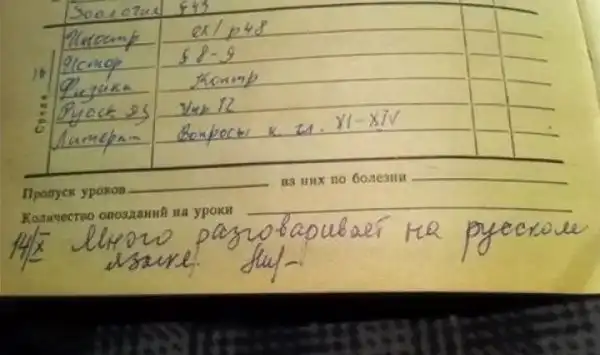 Зоология § 43
Иностр ex/ p48
Истор § 8-9
Среда Физика Контр
Русск яз Упр 12
Литерат Вопросы к гл. XI-XIV
Пропуск уроков из них по болезни
Количество опозданий на уроки
14/X Много разговаривает на русском
языке.